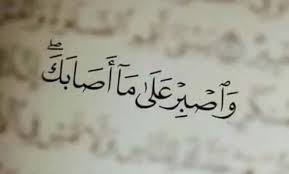 وَٱصْبِرْ عَلَىٰ مَآ أَصَابَكَۖ